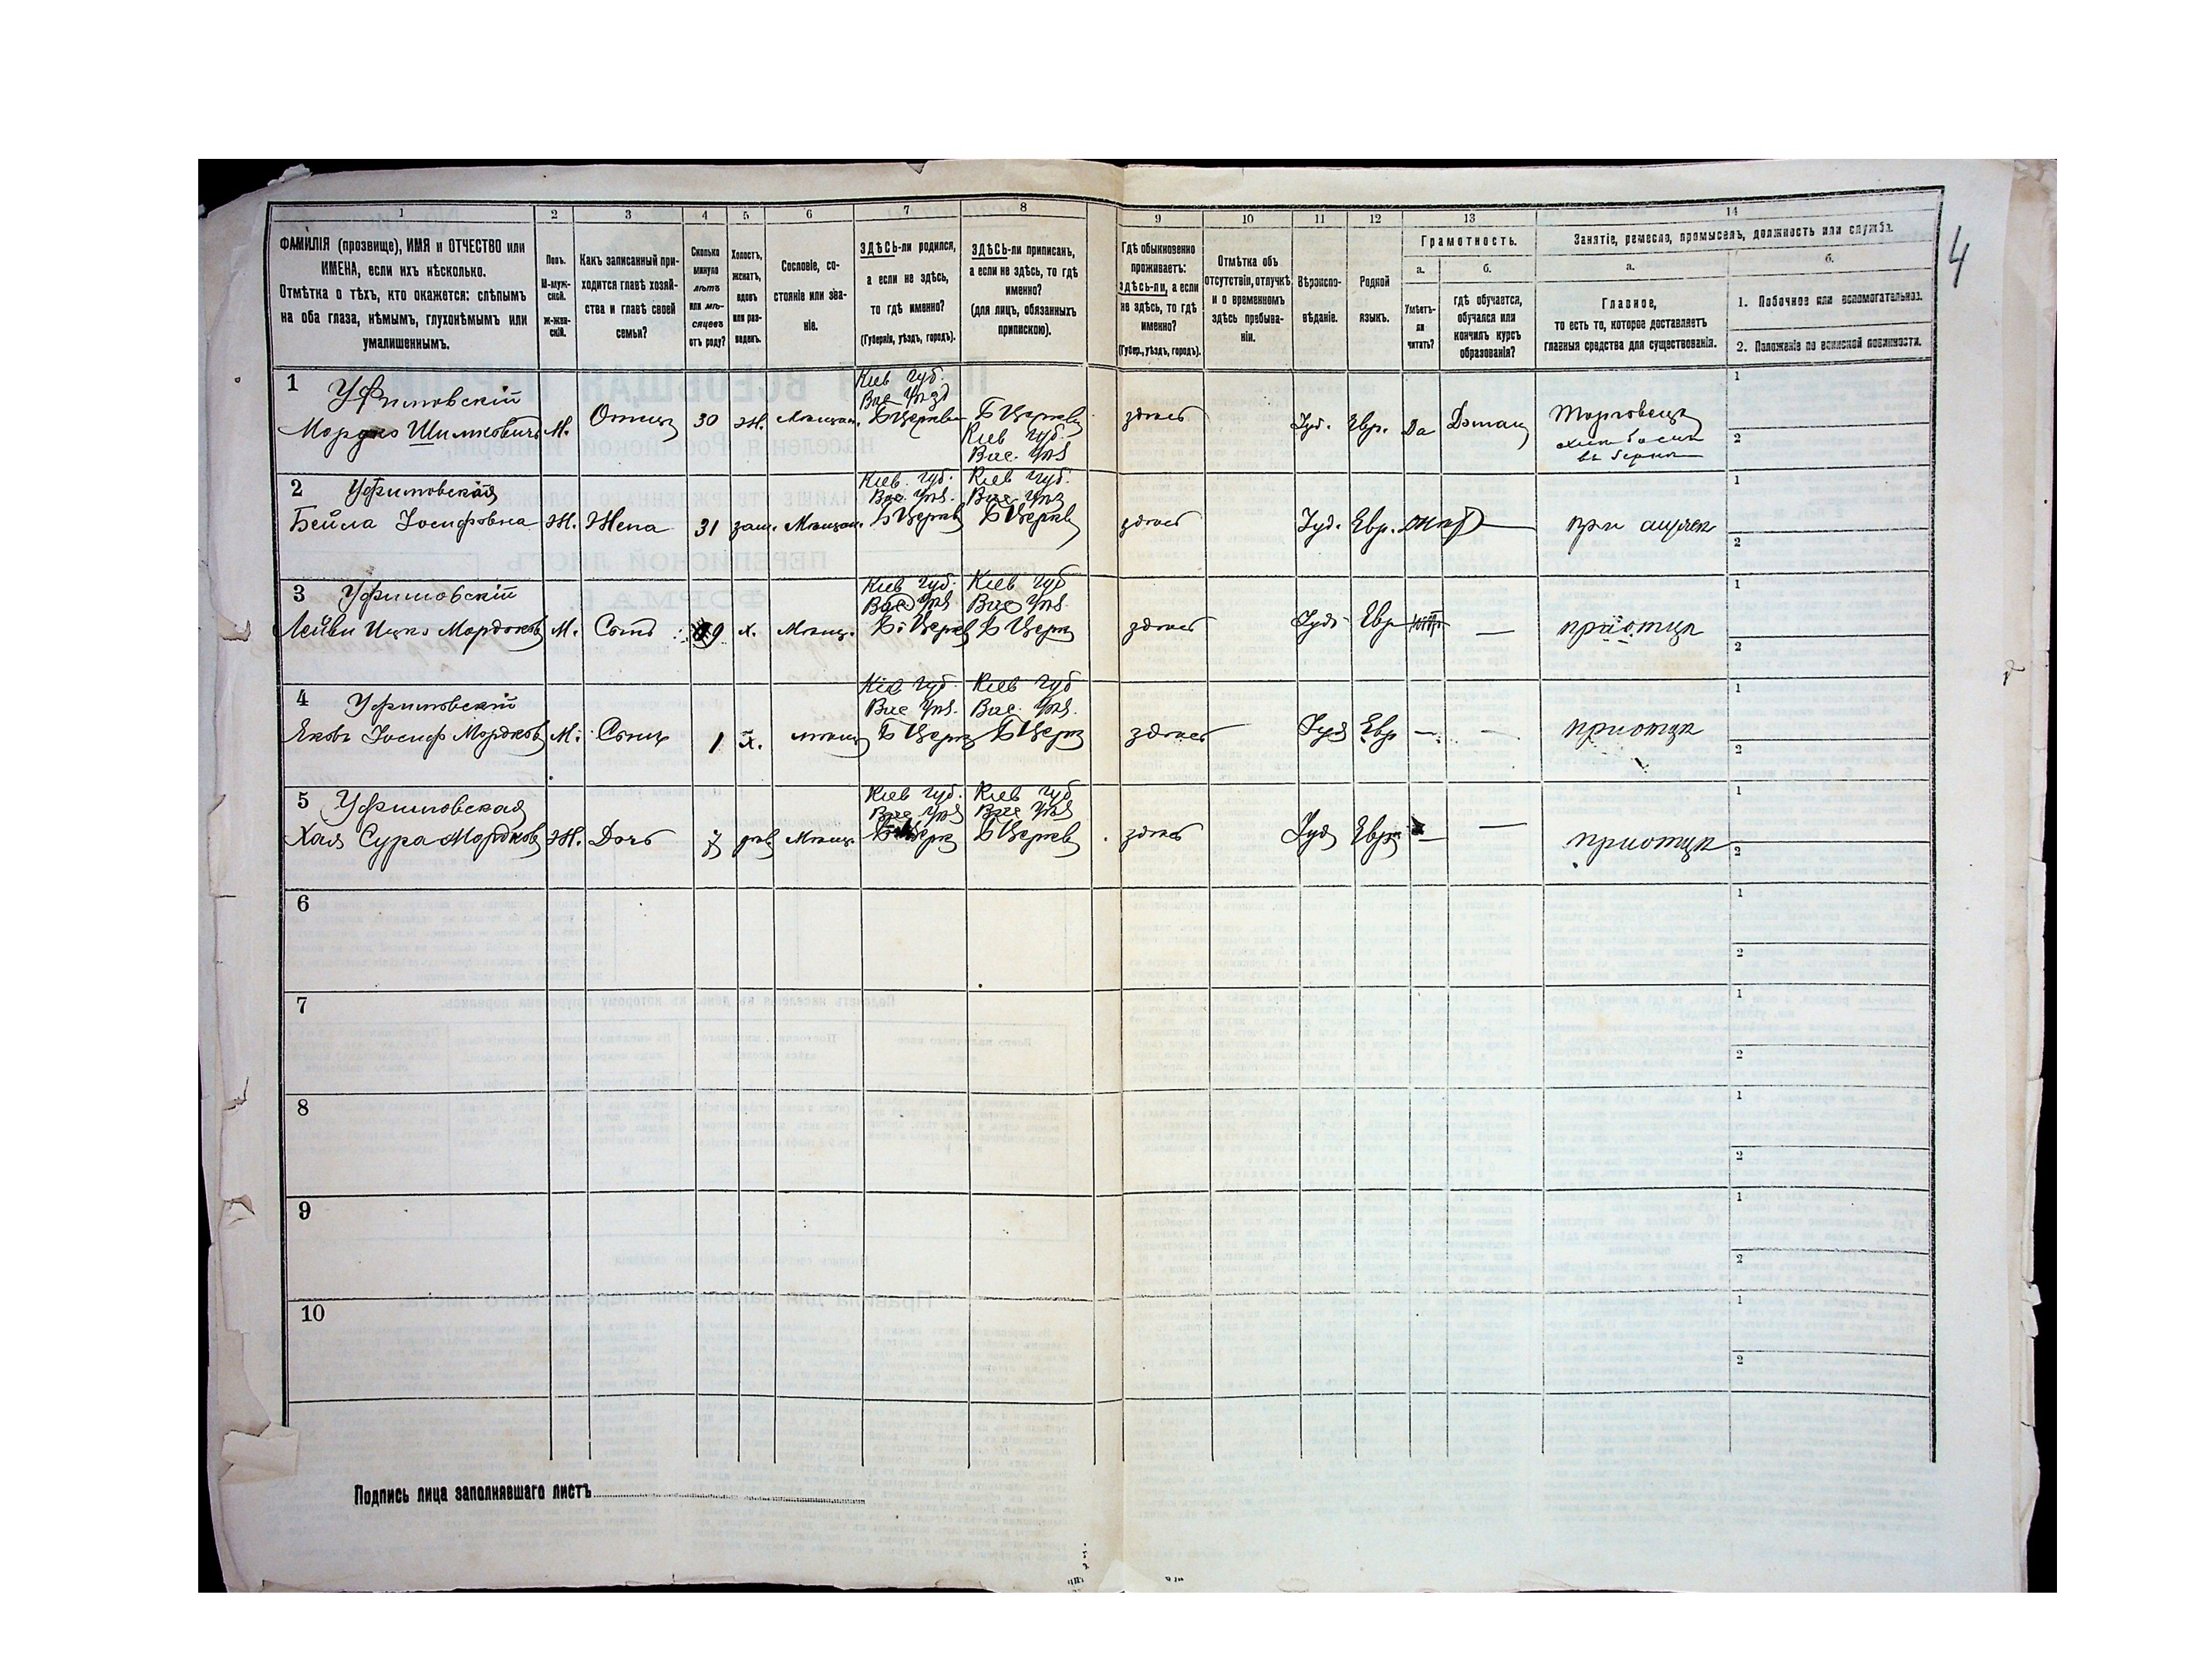 1 2 3 4 5 6 7 8 9 10 11 12 13 14
ФАМИЛІЯ (прозвище), ИМЯ и ОТЧЕСТВО или
ИМЕНА, если ихъ нѣсколько.
Отмѣтка о тѣхъ, кто окажется: слѣпымъ
на оба глаза, нѣмымъ, глухонѣмымъ или
умалишеннымъ.
Полъ.
М-муж-
ской.
ж-жен-
скій.
Какъ записанный при-
ходится главѣ хозяй-
ства и главѣ своей
семьи?
Сколько
минуло
лѣтъ
или мѣ-
сяцевъ
отъ роду?
Холостъ,
женатъ,
вдовъ
или раз-
веденъ.
Сословіе, со-
стояніе или зва-
ніе.
ЗДѢСЬ-ли родился,
а если не здѣсь,
то гдѣ именно?
(Губернія, уѣздъ, городъ).
ЗДѢСЬ-ли приписанъ,
а если не здѣсь, то гдѣ
именно?
(для лицъ, обязанныхъ
припискою).
Гдѣ обыкновенно
проживаетъ:
здѣсь-ли, а если
не здѣсь, то гдѣ
именно?
(Губер., уѣздъ, городъ).
Отмѣтка объ
отсутствіи, отлучкѣ
и о временномъ
здѣсь пребыва-
ніи.
Вѣроиспо-
вѣданіе.
Родной
языкъ.
Грамотность.
а.
Умѣетъ-
ли
читать?
б.
гдѣ обучается,
обучался или
кончилъ курсъ
образованія?
Занятіе, ремесло, промыселъ, должность или служба.
а.
Главное,
то есть то, которое доставляетъ
главныя средства для существованія.
б.
1. Побочное или вспомогательное.
2. Положеніе по воинской повинности.
4
1
Кіев губ.
Вас Уѣзд
Мордко Шимковичъ М. Отецъ 30 Ж. БЦеркви БЦеркви здѣсь Іуд. Евр. Да Дома Торговецъ
Кіев губ.
Вас. Уѣз
1
2
2
Кіев. губ. Кіев губ.
Вас. Уѣз. Вас. Уѣз
Бейла Іосифовна Ж. Жена 31 зам. Мѣщан. БЦеркв БЦеркв здѣсь Іуд. Евр.
1
2
3
Кіев губ. Кіев губ
Вас Уѣз Вас Уѣз.
Лейви Ицко Мордков М. Сынъ 9 х. Мѣщ. БЦеркв БЦерк здѣсь Іуд. Евр — при отцѣ
1
2
4
Кіев губ. Кіев губ
Вас Уѣз. Вас. Уѣз.
Яковъ Іосиф Мордков М. Сынъ 1 х. мѣщ БЦерк БЦерк здѣсь Іуд Евр — — при отцѣ
1
2
5
Кіев губ. Кіев губ
Вас Уѣз Вас Уѣз
Хая Сура Мордков Ж. Дочь дѣв Мѣщ. БЦерк БЦеркв здѣсь Іуд Евр — — при отцѣ
1
2
6
1
2
7
1
2
8
1
2
9
1
2
10
1
2
Подпись лица заполнявшаго листъ